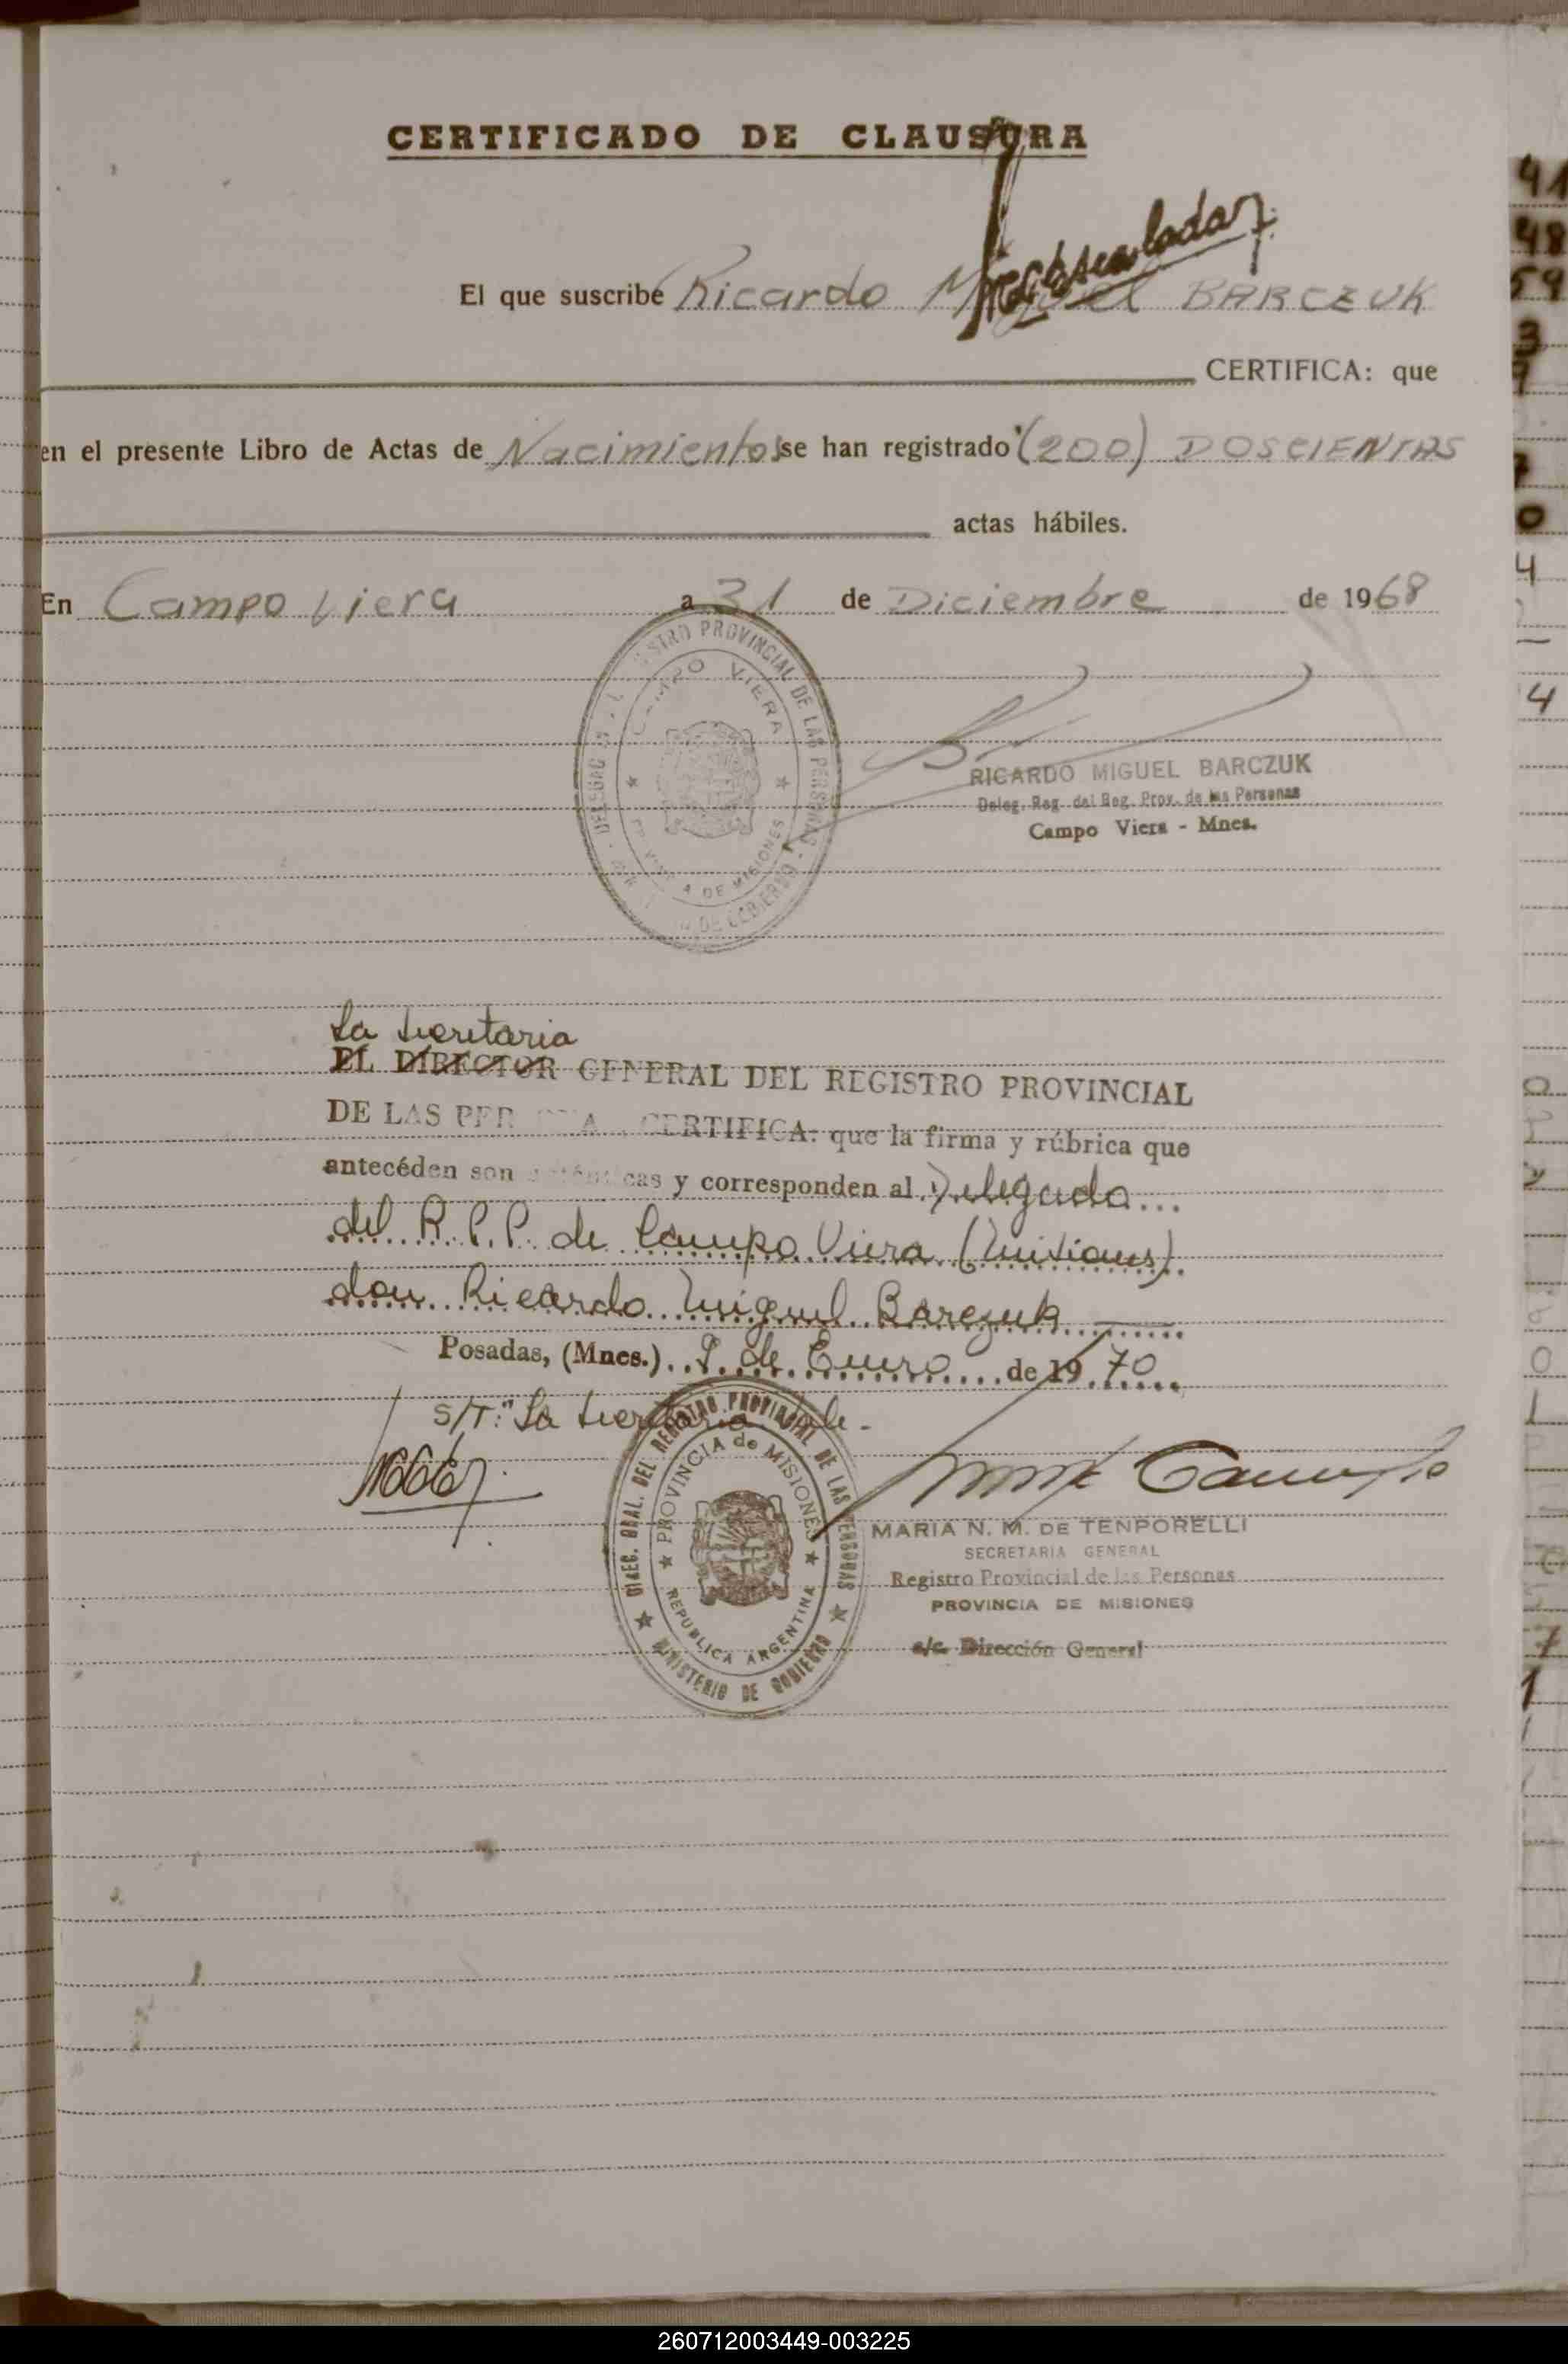 CERTIFICADO DE CLAUSURA
El que suscribe Ricardo Miguel BARCZUK
CERTIFICA: que
en el presente Libro de Actas de Nacimientos se han registrado (200) DOSCIENTAS
actas hábiles.
En Campo Viera a 31 de Diciembre de 1968
REGISTRO PROVINCIAL DE LAS PERSONAS
CAMPO VIERA
RICARDO MIGUEL BARCZUK
Deleg. Reg. del Reg. Prov. de las Personas
Campo Viera - Mnes.
La Secretaria
EL DIRECTOR GENERAL DEL REGISTRO PROVINCIAL
DE LAS PERSONAS, CERTIFICA: que la firma y rúbrica que
antecéden son auténticas y corresponden al Delegado
del R.P.P. de Campo Viera (Misiones)
don Ricardo Miguel Barczuk
Posadas, (Mnes.) de Enero de 1970
S/T: "La Secretaria" Vale.
DIREC. GRAL. DEL REGISTRO PROVINCIAL DE LAS PERSONAS
PROVINCIA de MISIONES
REPUBLICA ARGENTINA
MINISTERIO DE GOBIERNO
MARIA N. M. DE TENPORELLI
SECRETARIA GENERAL
Registro Provincial de las Personas
PROVINCIA DE MISIONES
a/c. Dirección General
260712003449-003225